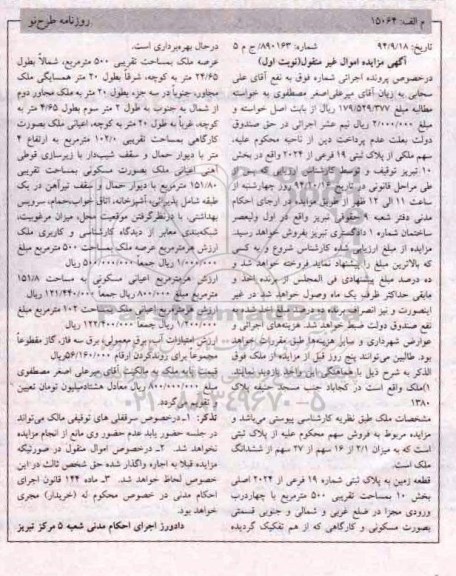 م الف: ۱۵۰۶۴
روزنامه طرح نو
تاریخ: ۹۴/۹/۱۸ شماره: ۸۹۰۱۶۳/ ج م ۵
آگهی مزایده اموال غیر منقول(نوبت اول)
درخصوص پرونده اجرائی شماره فوق به نفع آقای علی
سحابی به زیان آقای میرعلی‌اصغر مصطفوی به خواسته
مطالبه مبلغ ۱۷۹/۵۲۹/۳۷۷ ریال از بابت اصل خواسته و
مبلغ ۲/۰۰۰/۰۰۰ ریال نیم عشر اجرائی در حق صندوق
دولت بعلت عدم پرداخت دین از ناحیه محکوم علیه،
سهم ملکی از پلاک ثبتی ۱۹ فرعی از ۲۰۲۴ واقع در بخش
۱۰ تبریز توقیف و توسط کارشناس ارزیابی که پس از
طی مراحل قانونی در تاریخ ۹۴/۱۰/۱۶ روز چهارشنبه از
ساعت ۱۱ الی ۱۲ ظهر از طریق مزایده در اجرای احکام
مدنی دفتر شعبه ۹ حقوقی تبریز واقع در اول ولیعصر
ساختمان شماره ۱ دادگستری تبریز بفروش خواهد رسید.
مزایده از مبلغ ارزیابی شده کارشناس شروع و به کسی
که بالاترین مبلغ را پیشنهاد نماید فروخته خواهد شد و
ده درصد مبلغ پیشنهادی فی المجلس از برنده اخذ و
مابقی حداکثر ظرف یک ماه وصول خواهد شد در غیر
اینصورت و نیز انصراف برنده ده درصد اخذ شده به
نفع صندوق دولت ضبط خواهد شد. هزینه‌های اجرائی و
عوارض شهرداری و سایر هزینه‌ها طبق مقررات خواهد
بود. طالبین می‌توانند پنج روز قبل از مزایده از ملک فوق
الذکر به شرح ذیل با هماهنگی این واحد بازدید نمایند.
۱)ملک واقع است در کجاباد جنب مسجد حنیفه پلاک
۱۳۸۰
مشخصات ملک طبق نظریه کارشناسی پیوستی می‌باشد و
مزایده مربوط به فروش سهم محکوم علیه از پلاک ثبتی
است که به میزان ۲/۱ از ۱۶ سهم از ۲۷ سهم از ششدانگ
ملک است.
قطعه زمین به پلاک ثبتی شماره ۱۹ فرعی از ۲۰۲۴ اصلی
بخش ۱۰ بمساحت تقریبی ۵۰۰ مترمربع با چهاردرب
ورودی مجزا در ضلع غربی و شمالی و جنوبی قسمتی
بصورت مسکونی و کارگاهی که از هم تفکیک گردیده
درحال بهره‌برداری است.
عرصه ملک بمساحت تقریبی ۵۰۰ مترمربع، شمالاً بطول
۲۴/۶۵ متر به کوچه، شرقاً بطول ۲۰ متر همسایگی ملک
مجاور، جنوباً در سه جزء، بطول ۲۰ متر به ملک مجاور دوم
از شمال به جنوب به طول ۲ متر سوم بطول ۴/۶۵ متر به
کوچه، غرباً به طول ۲۰ متر به کوچه، اعیانی ملک بصورت
کارگاهی بمساحت تقریبی ۱۰۲/۰ مترمربع به ارتفاع ۴
متر با دیوار حمال و سقف شیب‌دار با زیرسازی قوطی
آهنی اعیانی ملک بصورت مسکونی بمساحت تقریبی
۱۵۱/۸۰ مترمربع با دیوار حمال و سقف تیرآهن در یک
طبقه شامل پذیرائی، آشپزخانه، اتاق خواب، حمام، سرویس
بهداشتی. با درنظرگرفتن موقعیت محل، میزان مرغوبیت،
شبکه‌بندی، معابر از دیدگاه کارشناسی و کاربری ملک
ارزش هرمترمربع عرصه ملک بمساحت ۵۰۰ مترمربع مبلغ
۱/۰۰۰/۰۰۰ ریال جمعاً ۵۰۰/۰۰۰/۰۰۰ ریال
ارزش هرمترمربع اعیانی مسکونی به مساحت ۱۵۱/۸
مترمربع مبلغ ۸۰۰/۰۰۰ ریال جمعاً ۱۲۱/۴۴۰/۰۰۰ ریال
ارزش هرمترمربع اعیانی ملک بمساحت ۱۰۲ مترمربع مبلغ
۱/۲۰۰/۰۰۰ ریال جمعاً ۱۲۲/۴۰۰/۰۰۰ ریال
ارزش امتیازات آب، برق معمولی، برق سه فاز، گاز مقطوعاً
مجموعاً برای روندکردن ارقام ۵۶/۱۶۰/۰۰۰ ریال
قیمت پایه به ملک به مالکیت آقای میرعلی اصغر مصطفوی
مبلغ ۸۰۰/۰۰۰/۰۰۰ ریال معادل هشتادمیلیون تومان تعیین
و تقویم می‌گردد.
تذکر: ۱ـ درخصوص سرقفلی های توقیفی مالک می‌تواند
در جلسه حضور یابد عدم حضور وی مانع از انجام مزایده
نخواهد شد. ۲ـ درخصوص اموال منقول در صورتیکه
مزایده قبلا به اجاره واگذار شده حق شخص ثالث در این
خصوص لحاظ خواهد شد. ۳ـ ماده ۱۴۴ قانون اجرای
احکام مدنی در خصوص محکوم له (خریدار) مجری
خواهد بود.
دادورز اجرای احکام مدنی شعبه ۵ مرکز تبریز
۰۲۱-۸۸۳۴۹۶۷۰-۵